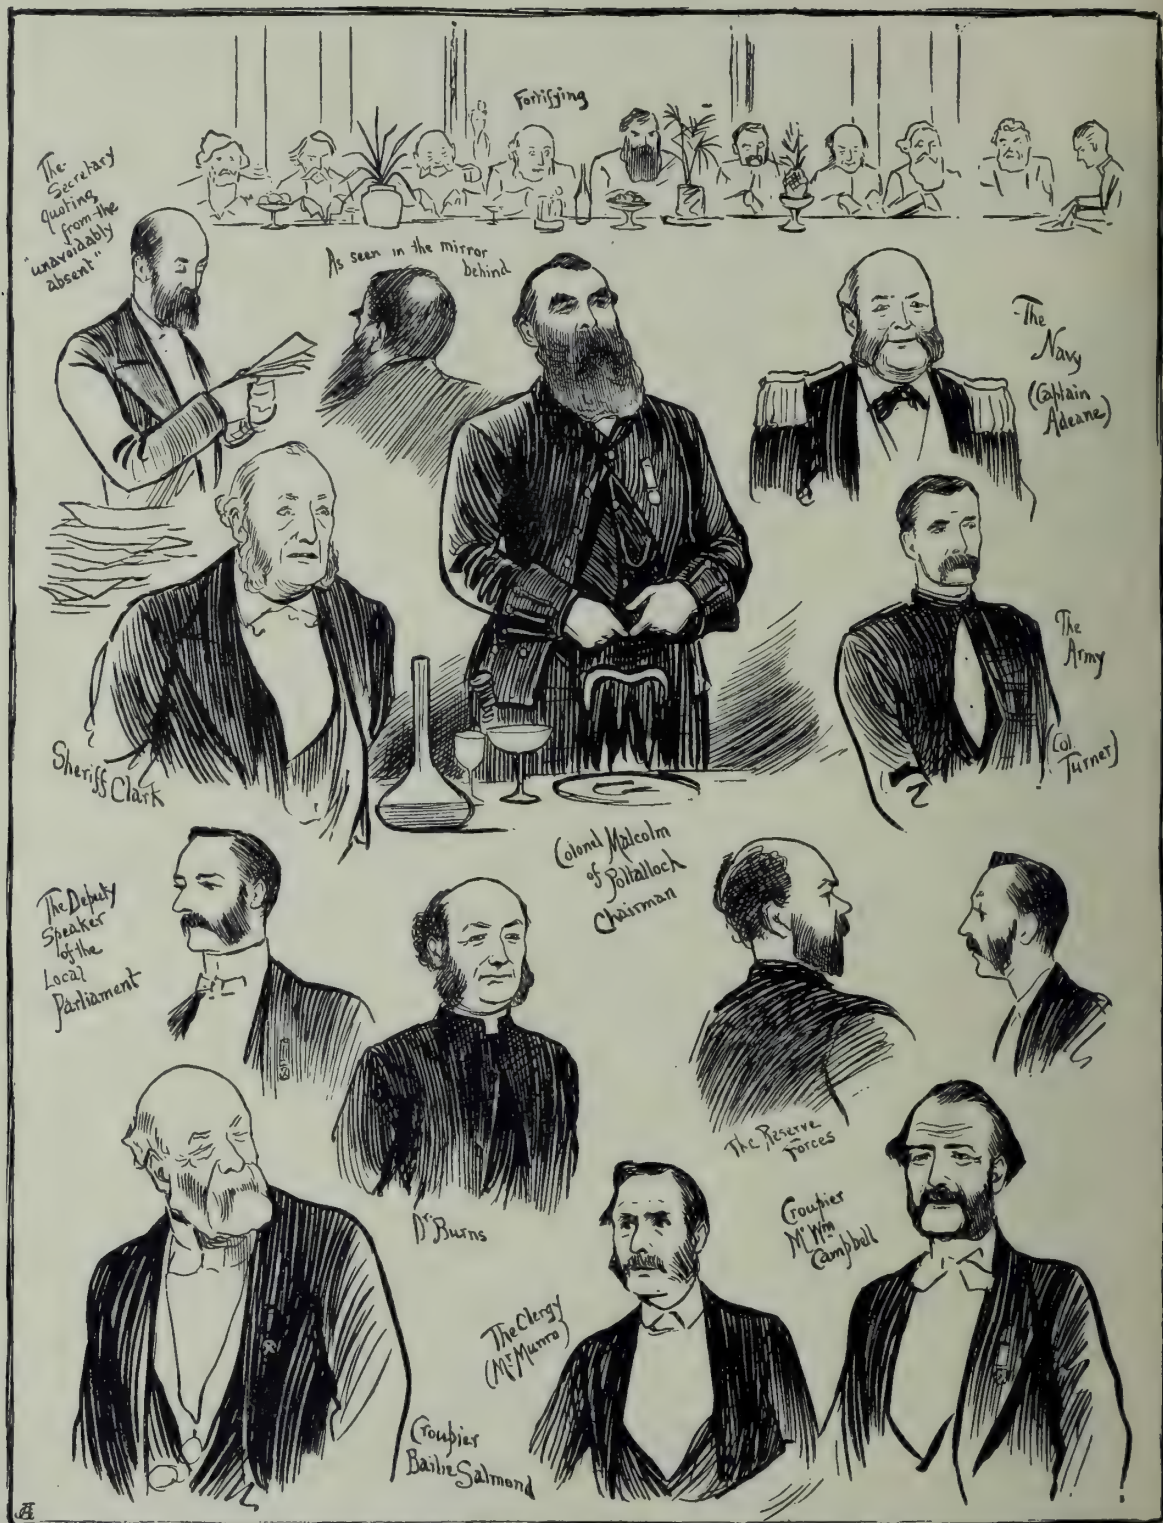 Fortifying
The
Secretary
quoting
from the
"unavoidably
absent"
As seen in the mirror
behind
The
Navy
(Captain
Adeane)
Sheriff Clark
The
Army
(Col.
Turner)
Colonel Malcolm
of Poltalloch
Chairman
The Deputy
Speaker
of the
Local
Parliament
Dr. Burns
The Reserve
Forces
Croupier
Mr Wm
Campbell
The Clergy
(Mr Munro)
Croupier
Bailie Salmond